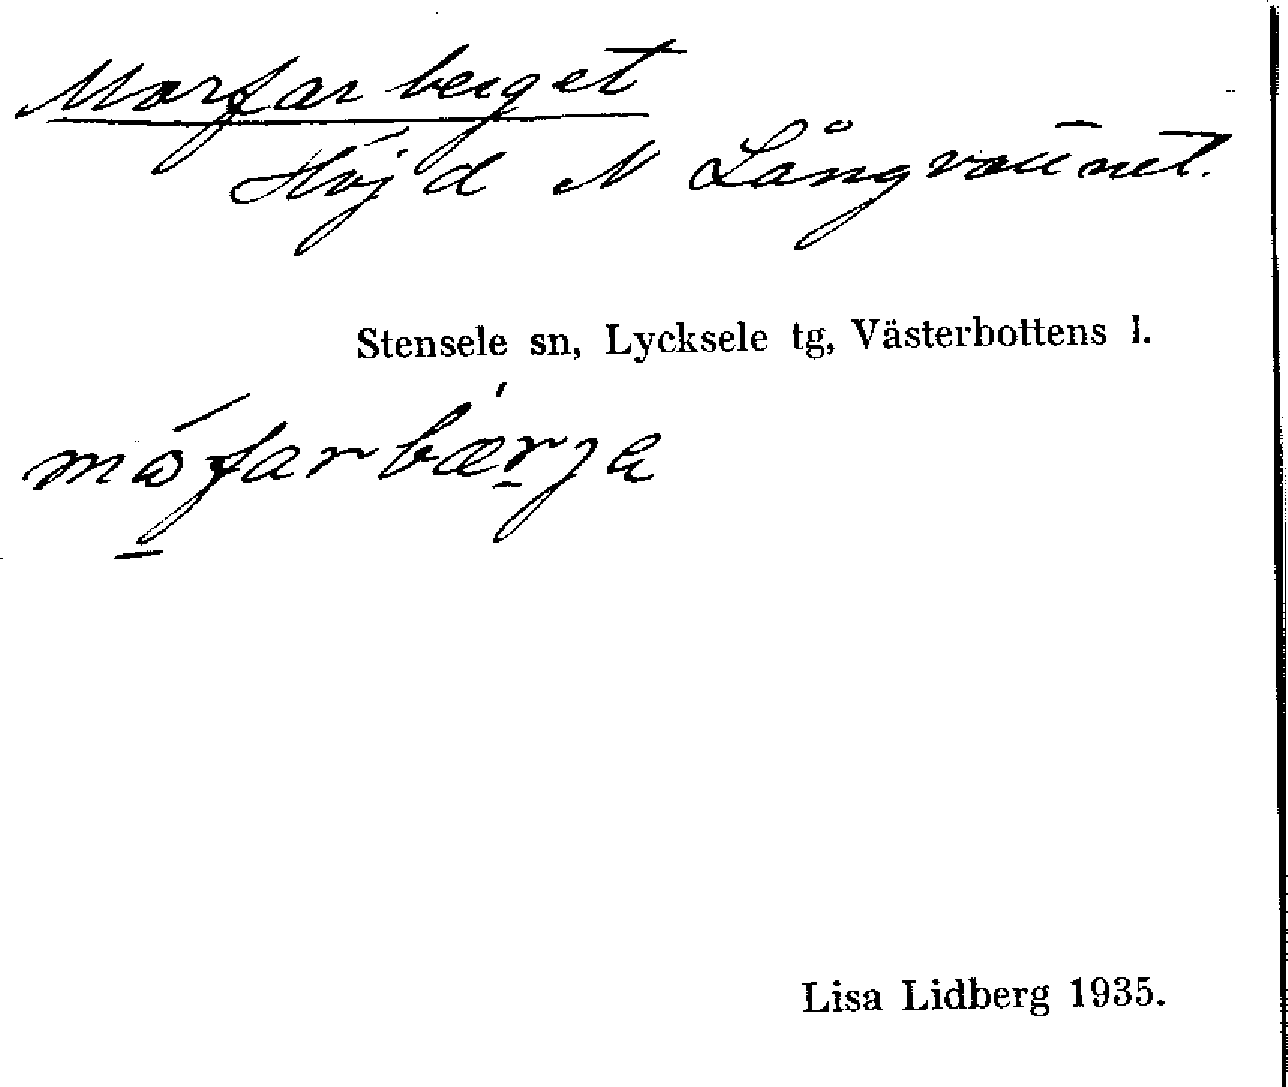 Morfarberget
Höjd N Långvattnet.
Stensele sn, Lycksele tg, Västerbottens l.
Lisa Lidberg 1935.